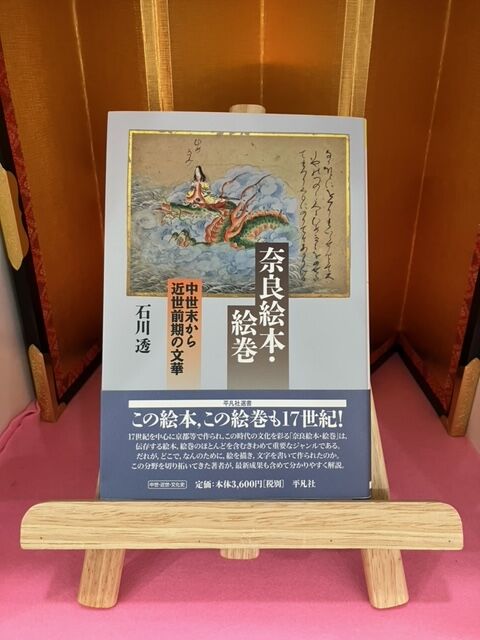 奈良絵本・
絵巻
中世末から
近世前期の文華
石川透
平凡社選書
この絵本,この絵巻も17世紀!
17世紀を中心に京都等で作られ、この時代の文化を彩る「奈良絵本・絵巻」は、
伝存する絵本、絵巻のほとんどを含むきわめて重要なジャンルである。
だれが、どこで、なんのために、絵を描き、文字を書いて作られたのか。
この分野を切り拓いてきた著者が、最新成果も含めて分かりやすく解説。
中世・近世・文化史
定価:本体3,600円[税別] 平凡社